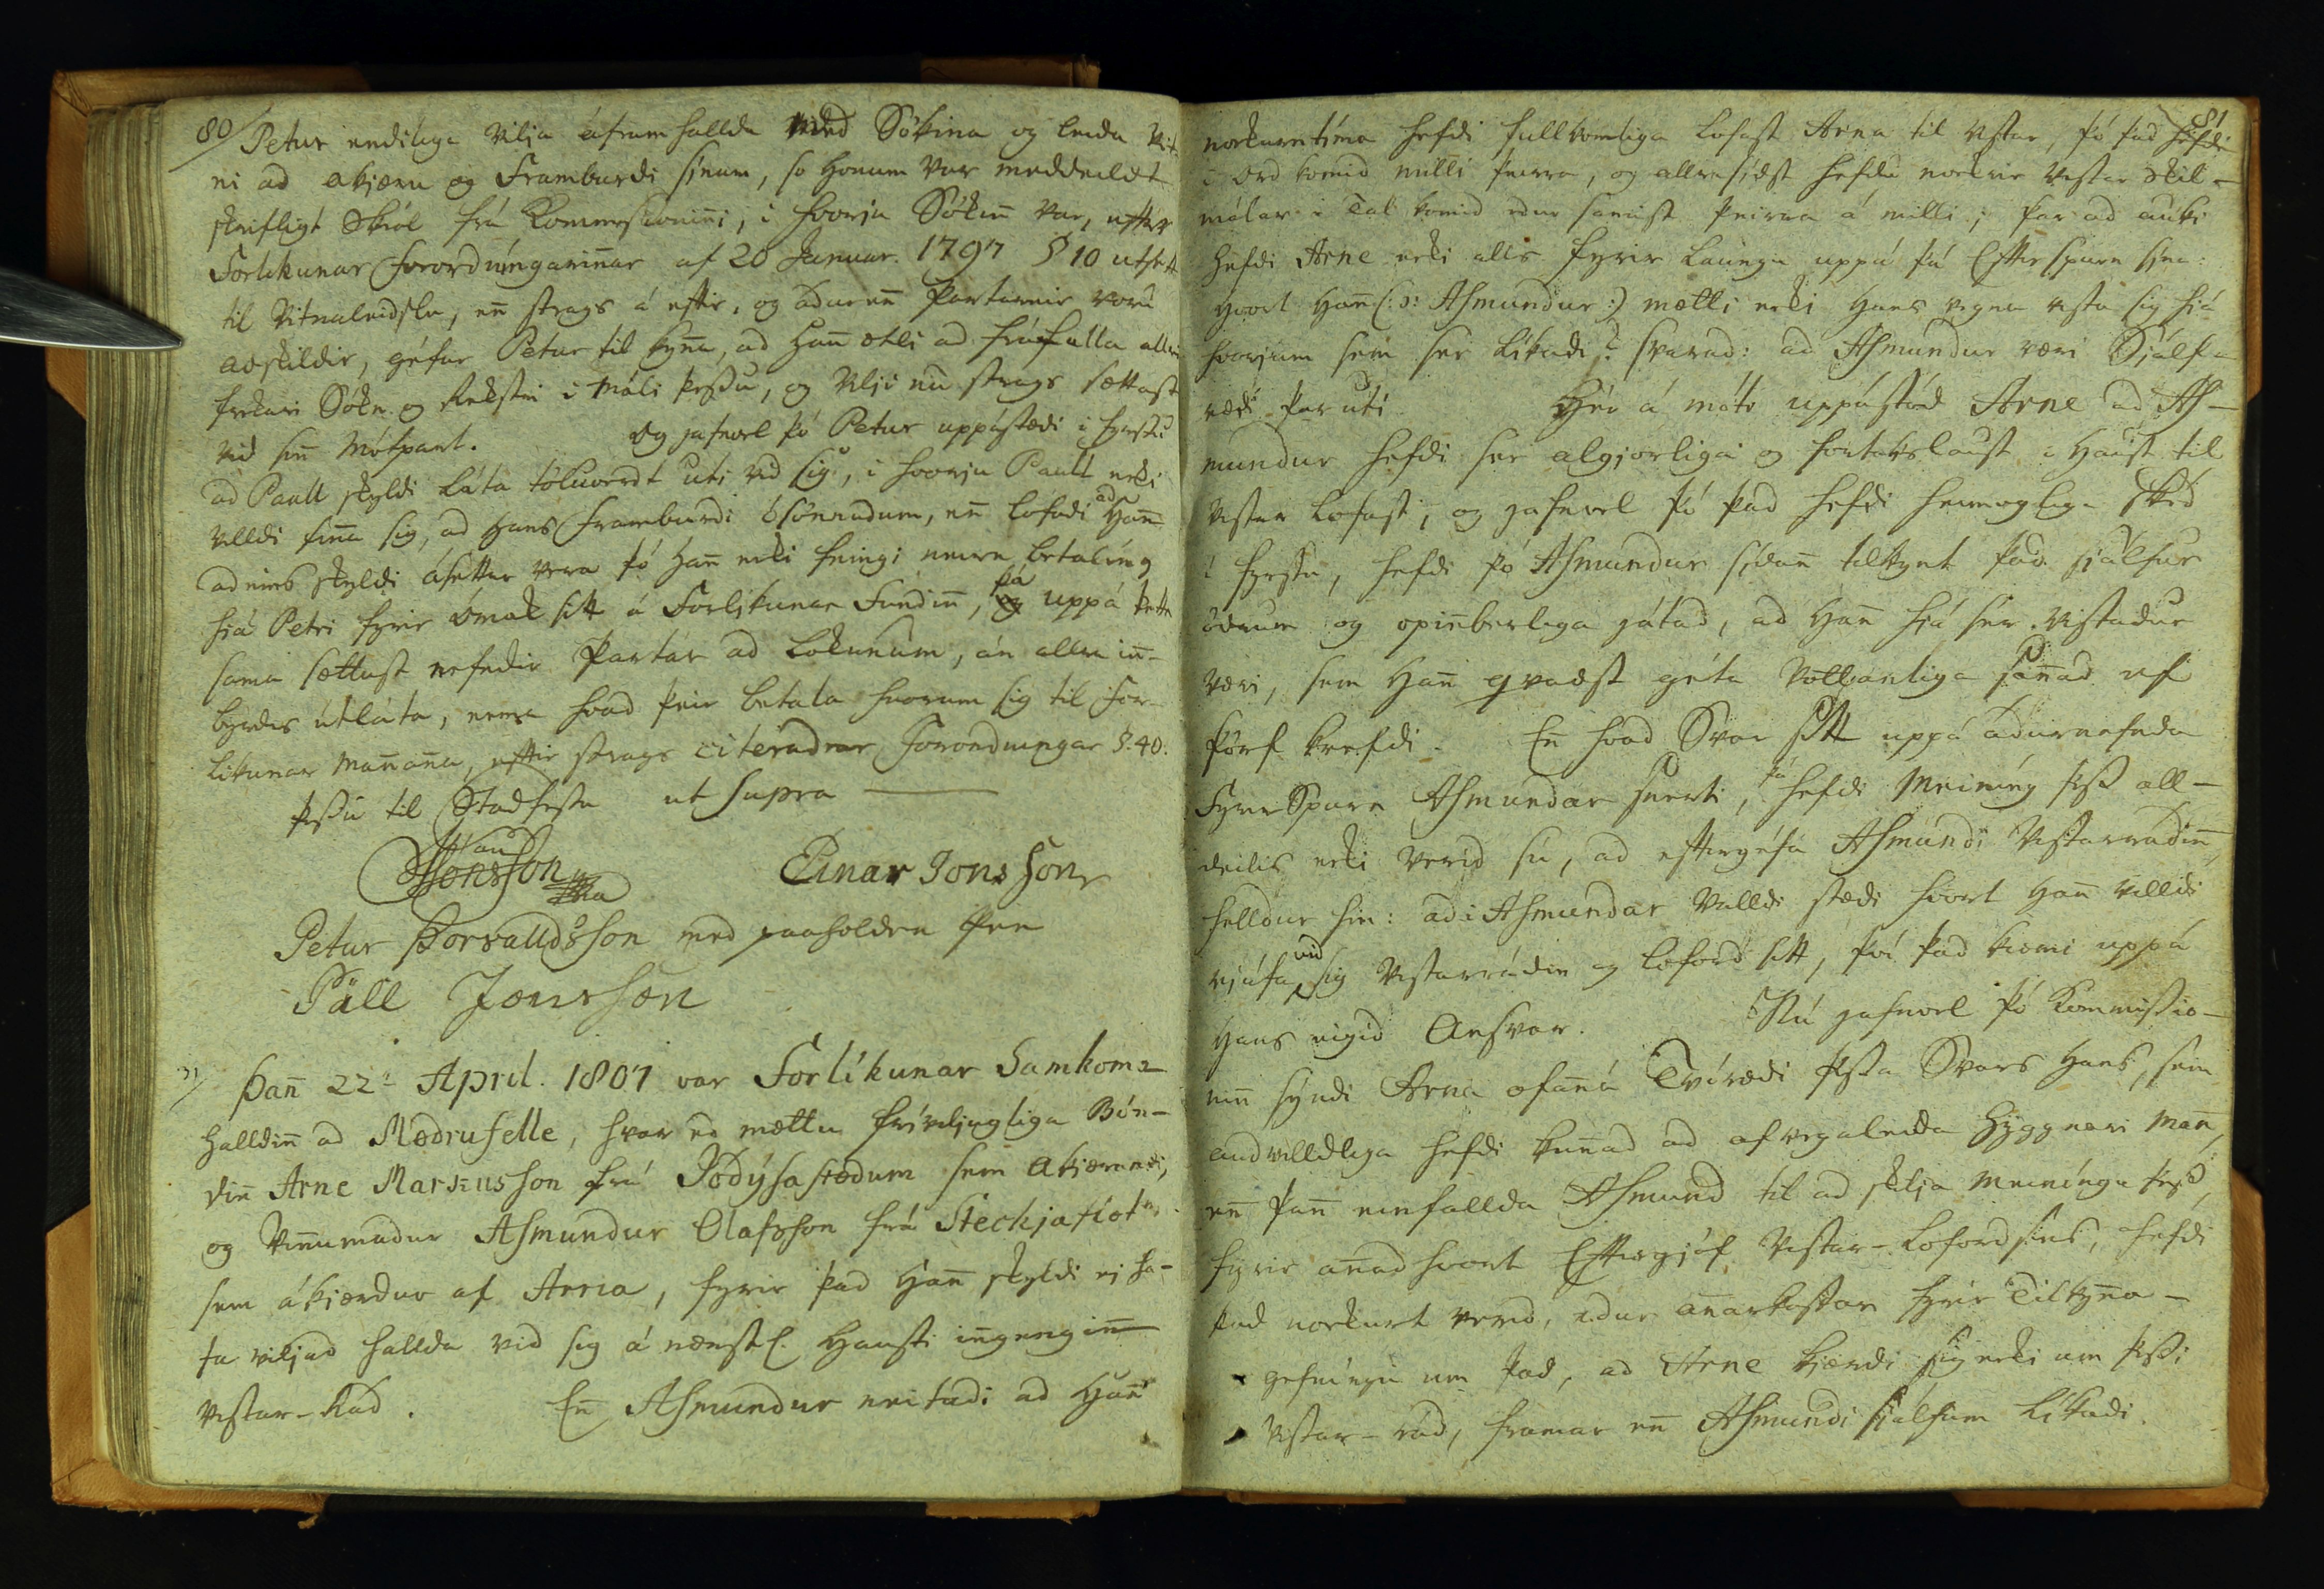 80/ Petur endilega vilja áframhallda med Sökina og leida Vit-
ni ad akjæru og Framburdi sinum, so honum var meddeildt
skrifligt Skiöl frá Kommissioninni, i hvorju Sökin var, eftter
Forlikunar forordningarinnar af 20 Januar. 1797 § 10 utsett
til Vitnaleidslu, en strags á eftir, og adurenn Partarnir voru
adskildir, géfur Petur til kynna, ad Hann ætli ad fráfalla allri
frekari Sökn og Rekstri i Máli þessu, og vilji nu strags sættast
vid sinn Mótpart. Og jafnvel þó Petur uppástædi i fyrstu
ad Paull skyldi láta töluvordt uti vid sig, i hvorju Paull ecki
villdi finna sig, ad Hans Framburdi ósönnudum, enn lofadi ad Hann
adeins skyldi ásettur vera þó Hann ecki feingi neina betaling
hiá Petri fyrir ómak sitt á Forlikunar Fundinn, þá uppá þetta
sama sættust nefndir Partar ad lokunum, án allra inn-
byrdis útláta, nema hvad þeir betala hvorum sig til For-
likunar Mannanna, eftir strags citéradrar Forordningar §. 40.
þessu til Stadfestu ut supra
Jonsson
Einar Jons Son
Petur Þorvalldsson med paaholden Pen
Päll Jonsson
Þann 22. April. 1801 var Forlíkunar Samkoma
Halldinn ad Mødrufelle, hvar ed mættu fríviljugliga Bón-
dinn Arne Markusson frá Jódýsastødum sem Akiærandi,
og Vinnumadur Asmundur Olafsson frá Steckjaflöt
sem ákiærdur af Arna, fyrir þad Hann skyldi ej ha-
fa viljad hallda vid sig á næstl. Hausti inngenginn
Vistar-Rád. En Asmundur neitadi ad Hann
81
nockurntima hefdi fullkomliga lofast Arna til Vistar, þó þad hefdi
i Ord komid milli þeirra, og allrasidst hefdu nockrir Vistar Skil-
málar i Tal komid edur samist þeirra á milli; þar ad auki
hefdi Arne ecki alls fyrir laungu uppá þá Eftirspurn sina:
hvort Hann (:ɔ: Asmundur:) mætti ecki Hans vegna vista sig hiá
hvorjum sem sér líkadi? svarad: ad Asmundur væri Sjálf-
rædi þar uti. Hér á móte uppástód Arne ad As-
mundur hefdi sér algjörliga og fortakslaust i Haust til
Vistar lofast; og jafnvel þó þad hefdi heimoglega skéd
i fyrstu, hefdi þó Asmundur sidann tilkynt þad sjálfur
ödrum og opinberlega játad, ad Hann hiá sér vistadur
væri, sem Hann qvædst géta vottanliga sannad ef
þörf krefdi. En hvad Svar sitt uppá adurnefnda
Fyrer Spurn Asmundar snerti, þá hefdi Meining þess all-
deilis ecki verid su, ad eftergéfa Asmundi Vistarrádinn,
helldur hin: ad i Asmundar Valldi stædi hvort Hann villdi
rjúfa vid sig Vistarrádin og loford sitt, þvi þad kiæmi uppá
Hans eigid Ansvar. Nú jafnvel þó Kommissio-
nin syndi Arna ofanná Tvirædi þessa Svars Hans, sem
audvelldlega hefdi kunnad ad afvegaleida hyggnari Mann,
enn þann einfallda Asmund til ad skilja Meininguna þess,
fyrir annadhvort Eftergjöf Vistar-Lofordsins, hefdi
þad nockurt verid, edur annarkostar fyrir Tilkynna-
gefningu um þad, ad Arne kiærdi sig ecki um þessi
Vistar-rád, framar en Asmundi sjálfum líkadi.